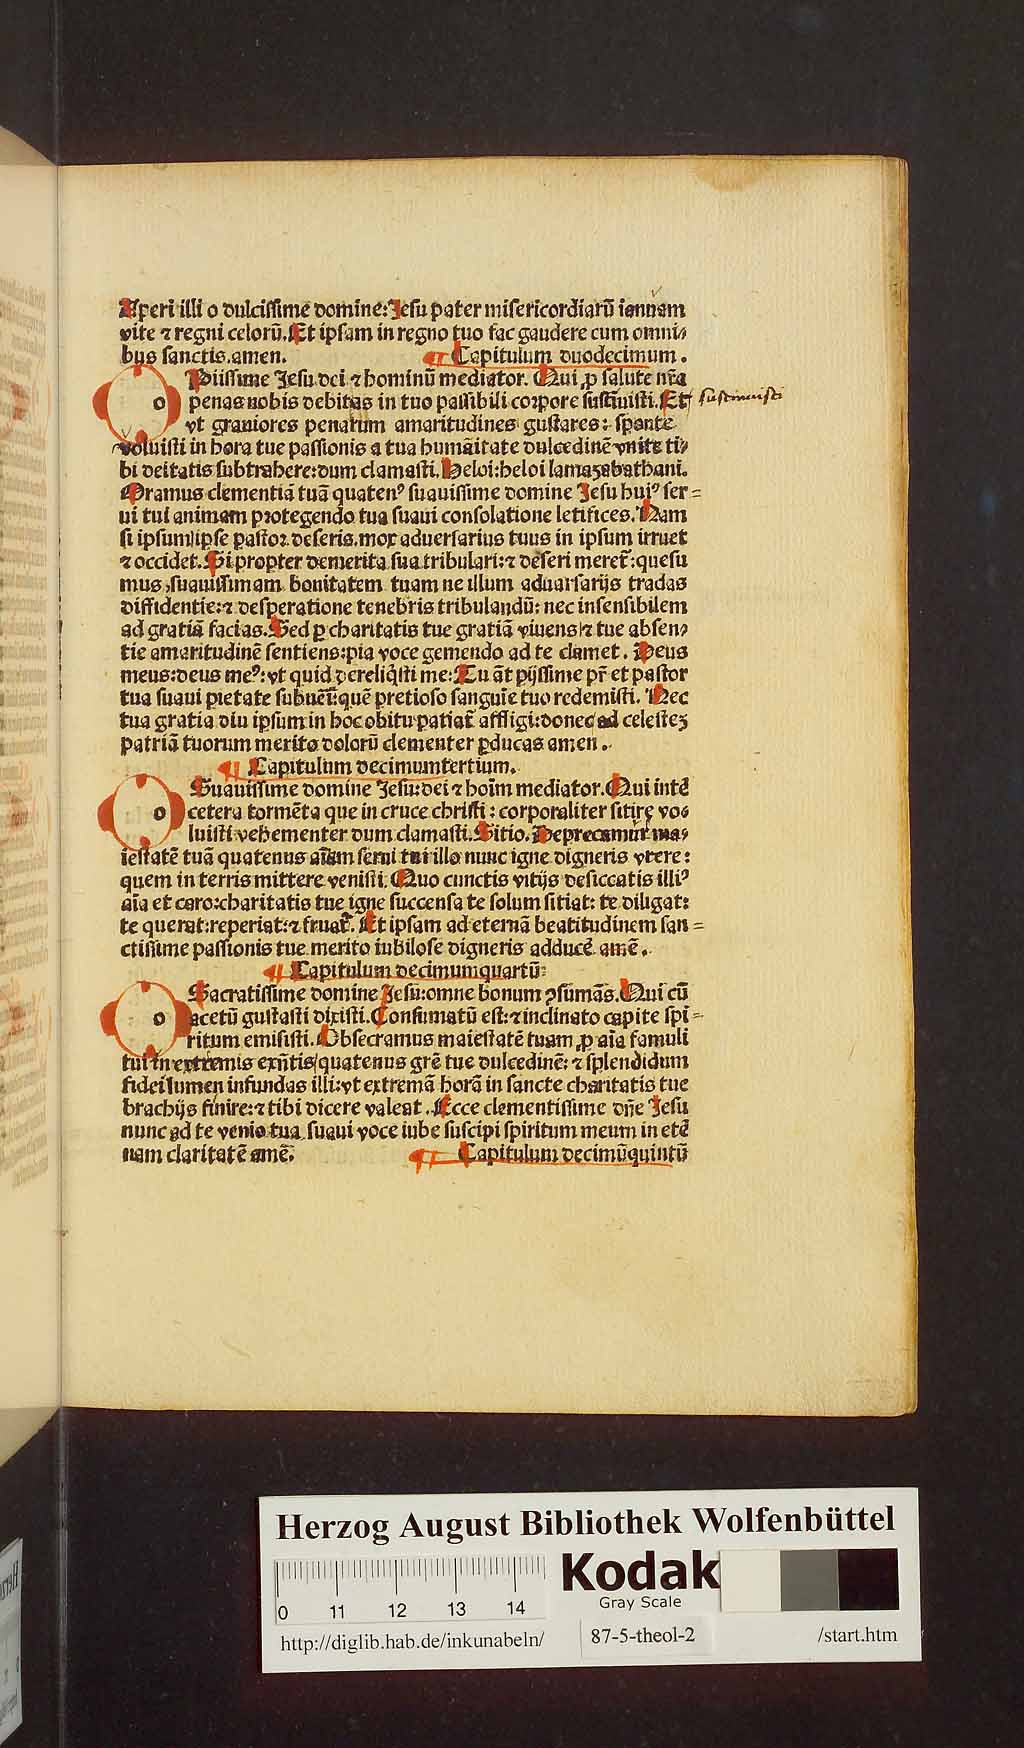 Aperi illi o dulcissime domine: Jesu pater misericordiarū iannam
vite ⁊ regni celorū. Et ipsam in regno tuo fac gaudere cum omni⸗
bus sanctis. amen. ¶ Capitulum duodecimum.
O Piissime Jesu dei ⁊ hominū mediator. Qui ꝓ salute nr̄a
penas nobis debitas in tuo passibili corpore sustinuisti. Et sustinuisti
vt grauiores penarum amaritudines gustares: sponte
voluisti in hora tue passionis a tua humāitate dulcedinē vnite ti⸗
bi deitatis subtrahere: dum clamasti. Heloi: heloi lamazabathani.
Oramus clementiā tuā quatenꝰ suauissime domine Jesu huiꝰ ser⸗
ui tui animam protegendo tua suaui consolatione letifices. Nam
si ipsum ipse pastor deseris. mox aduersarius tuus in ipsum irruet
⁊ occidet. Si propter demerita sua tribulari: ⁊ deseri meret̄: quesu
mus suauissimam bonitatem tuam ne illum aduarsarijs tradas
diffidentie: ⁊ desperatione tenebris tribulandū: nec insensibilem
ad gratiā facias. Sed ꝑ charitatis tue gratiā viuens ⁊ tue absen⸗
tie amaritudinē sentiens: pia voce gemendo ad te clamet. Deus
meus: deus meꝰ: vt quid dereliq̇sti me: Tu āt pijssime pr̄ et pastor
tua suaui pietate subueni: quē pretioso sanguīe tuo redemisti. Nec
tua gratia diu ipsum in hoc obitu patiat̄ affligi: donec ad celestez
patriā tuorum merito dolorū clementer ꝓducas amen.
¶ Capitulum decimumtertium.
O Suauissime domine Jesu: dei ⁊ hoīm mediator. Qui intē
cetera tormēta que in cruce christi: corporaliter sitire vo⸗
luisti vehementer dum clamasti. Sitio. Deprecamur ma⸗
iestatē tuā quatenus aīam serui tui illo nunc igne digneris vrere:
quem in terris mittere venisti. Quo cunctis vitijs desiccatis illiꝰ
aīa et caro: charitatis tue igne succensa te solum sitiat: te diligat:
te querat: reperiat: ⁊ fruat̄. Et ipsam ad eternā beatitudinem san⸗
ctissime passionis tue merito iubilose digneris adducē amē.
¶ Capitulum decimumquartū:
O Sacratissime domine Jesu: omne bonum ꝯsumās. Qui cū
acetū gustasti dixisti. Consumatū est: ⁊ inclinato capite spi⸗
ritum emisisti. Obsecramus maiestatē tuam ꝓ aīa famuli
tui in extremis exn̄tis quatenus grē tue dulcedinē: ⁊ splendidum
fidei lumen infundas illi: vt extremā horā in sancte charitatis tue
brachijs finire: ⁊ tibi dicere valeat. Ecce clementissime dn̄e Jesu
nunc ad te venio tua suaui voce iube suscipi spiritum meum in etē
nam claritatē amē. ¶ Capitulum decimūquintū
Herzog August Bibliothek Wolfenbüttel
Kodak
Gray Scale
0 11 12 13 14
http://diglib.hab.de/inkunabeln/ 87-5-theol-2 /start.htm